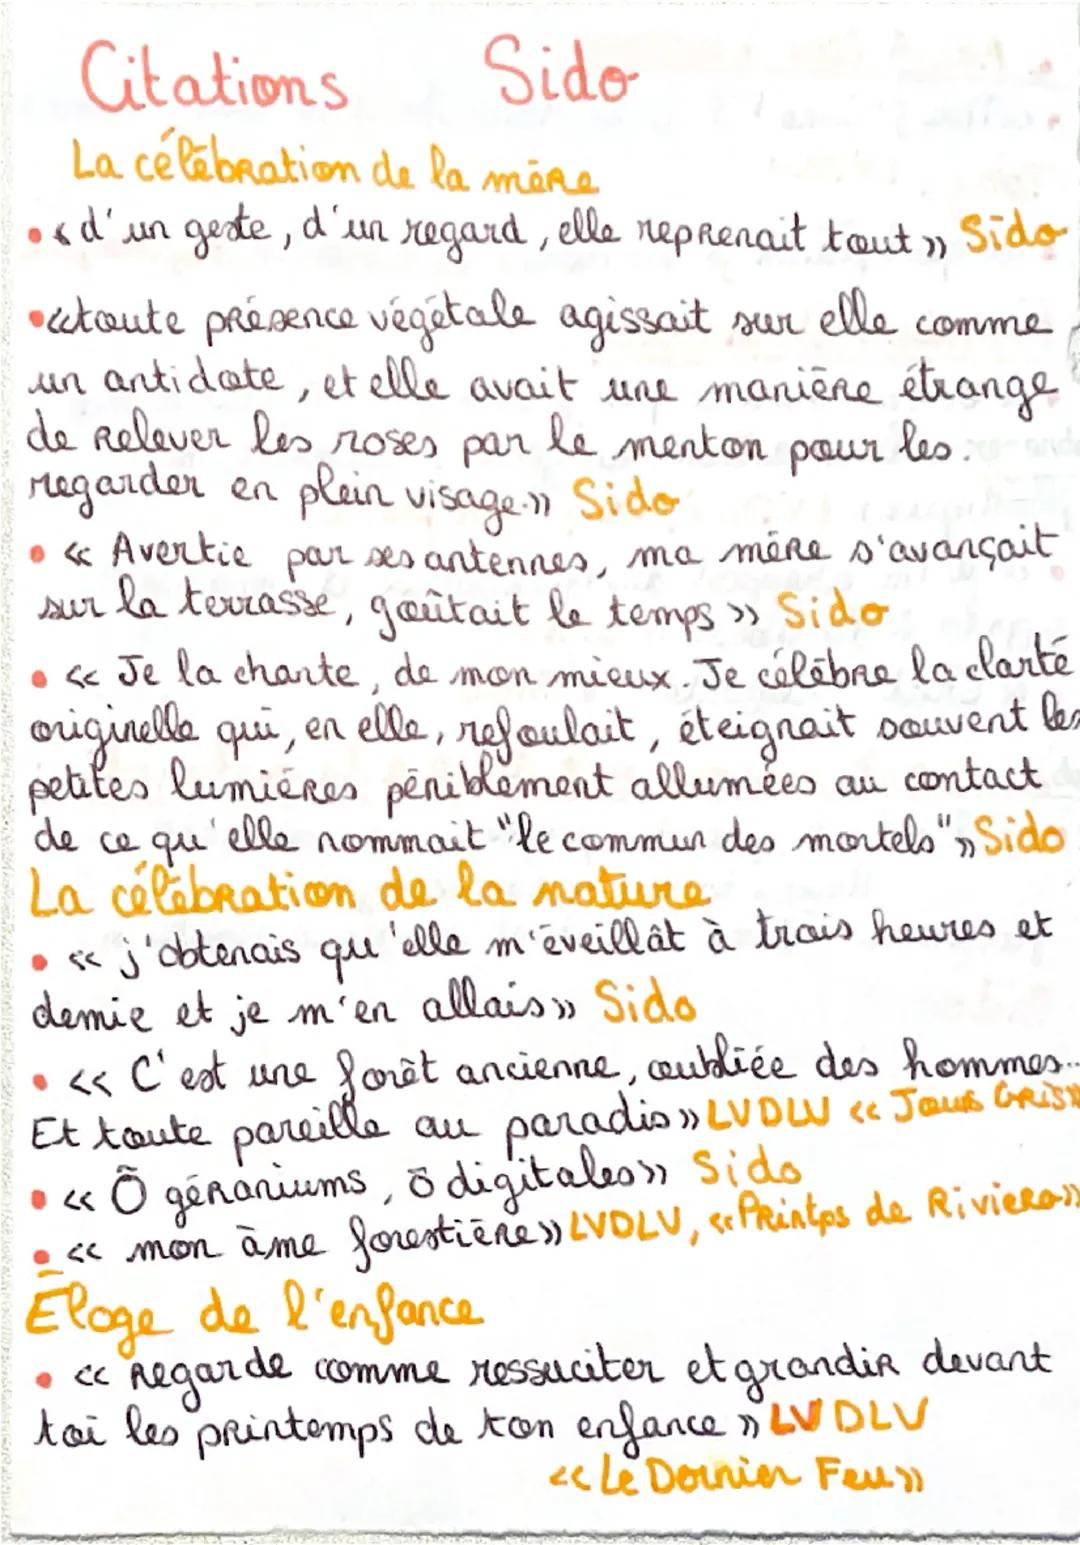 Citations Sido
La célébration de la mère
• « d'un geste, d'un regard, elle reprenait tout » Sido
• «toute présence végétale agissait sur elle comme
un antidote, et elle avait une manière étrange
de relever les roses par le menton pour les
regarder en plein visage.» Sido
• « Avertie par ses antennes, ma mère s'avançait
sur la terrasse, goûtait le temps » Sido
• « Je la chante, de mon mieux. Je célèbre la clarté
originelle qui, en elle, refoulait, éteignait souvent les
petites lumières péniblement allumées au contact
de ce qu'elle nommait "le commun des mortels"» Sido
La célébration de la nature
• « j'obtenais qu'elle m'éveillât à trois heures et
demie et je m'en allais» Sido
• « C'est une forêt ancienne, oubliée des hommes...
Et toute pareille au paradis» LVDLV « Jour Gris»
• « Ô géraniums, ô digitales» Sido
• « mon âme forestière» LVDLV, «Printps de Riviera»
Éloge de l'enfance
• « Regarde comme ressuciter et grandir devant
toi les printemps de ton enfance » LVDLV
« Le Dernier Feu»